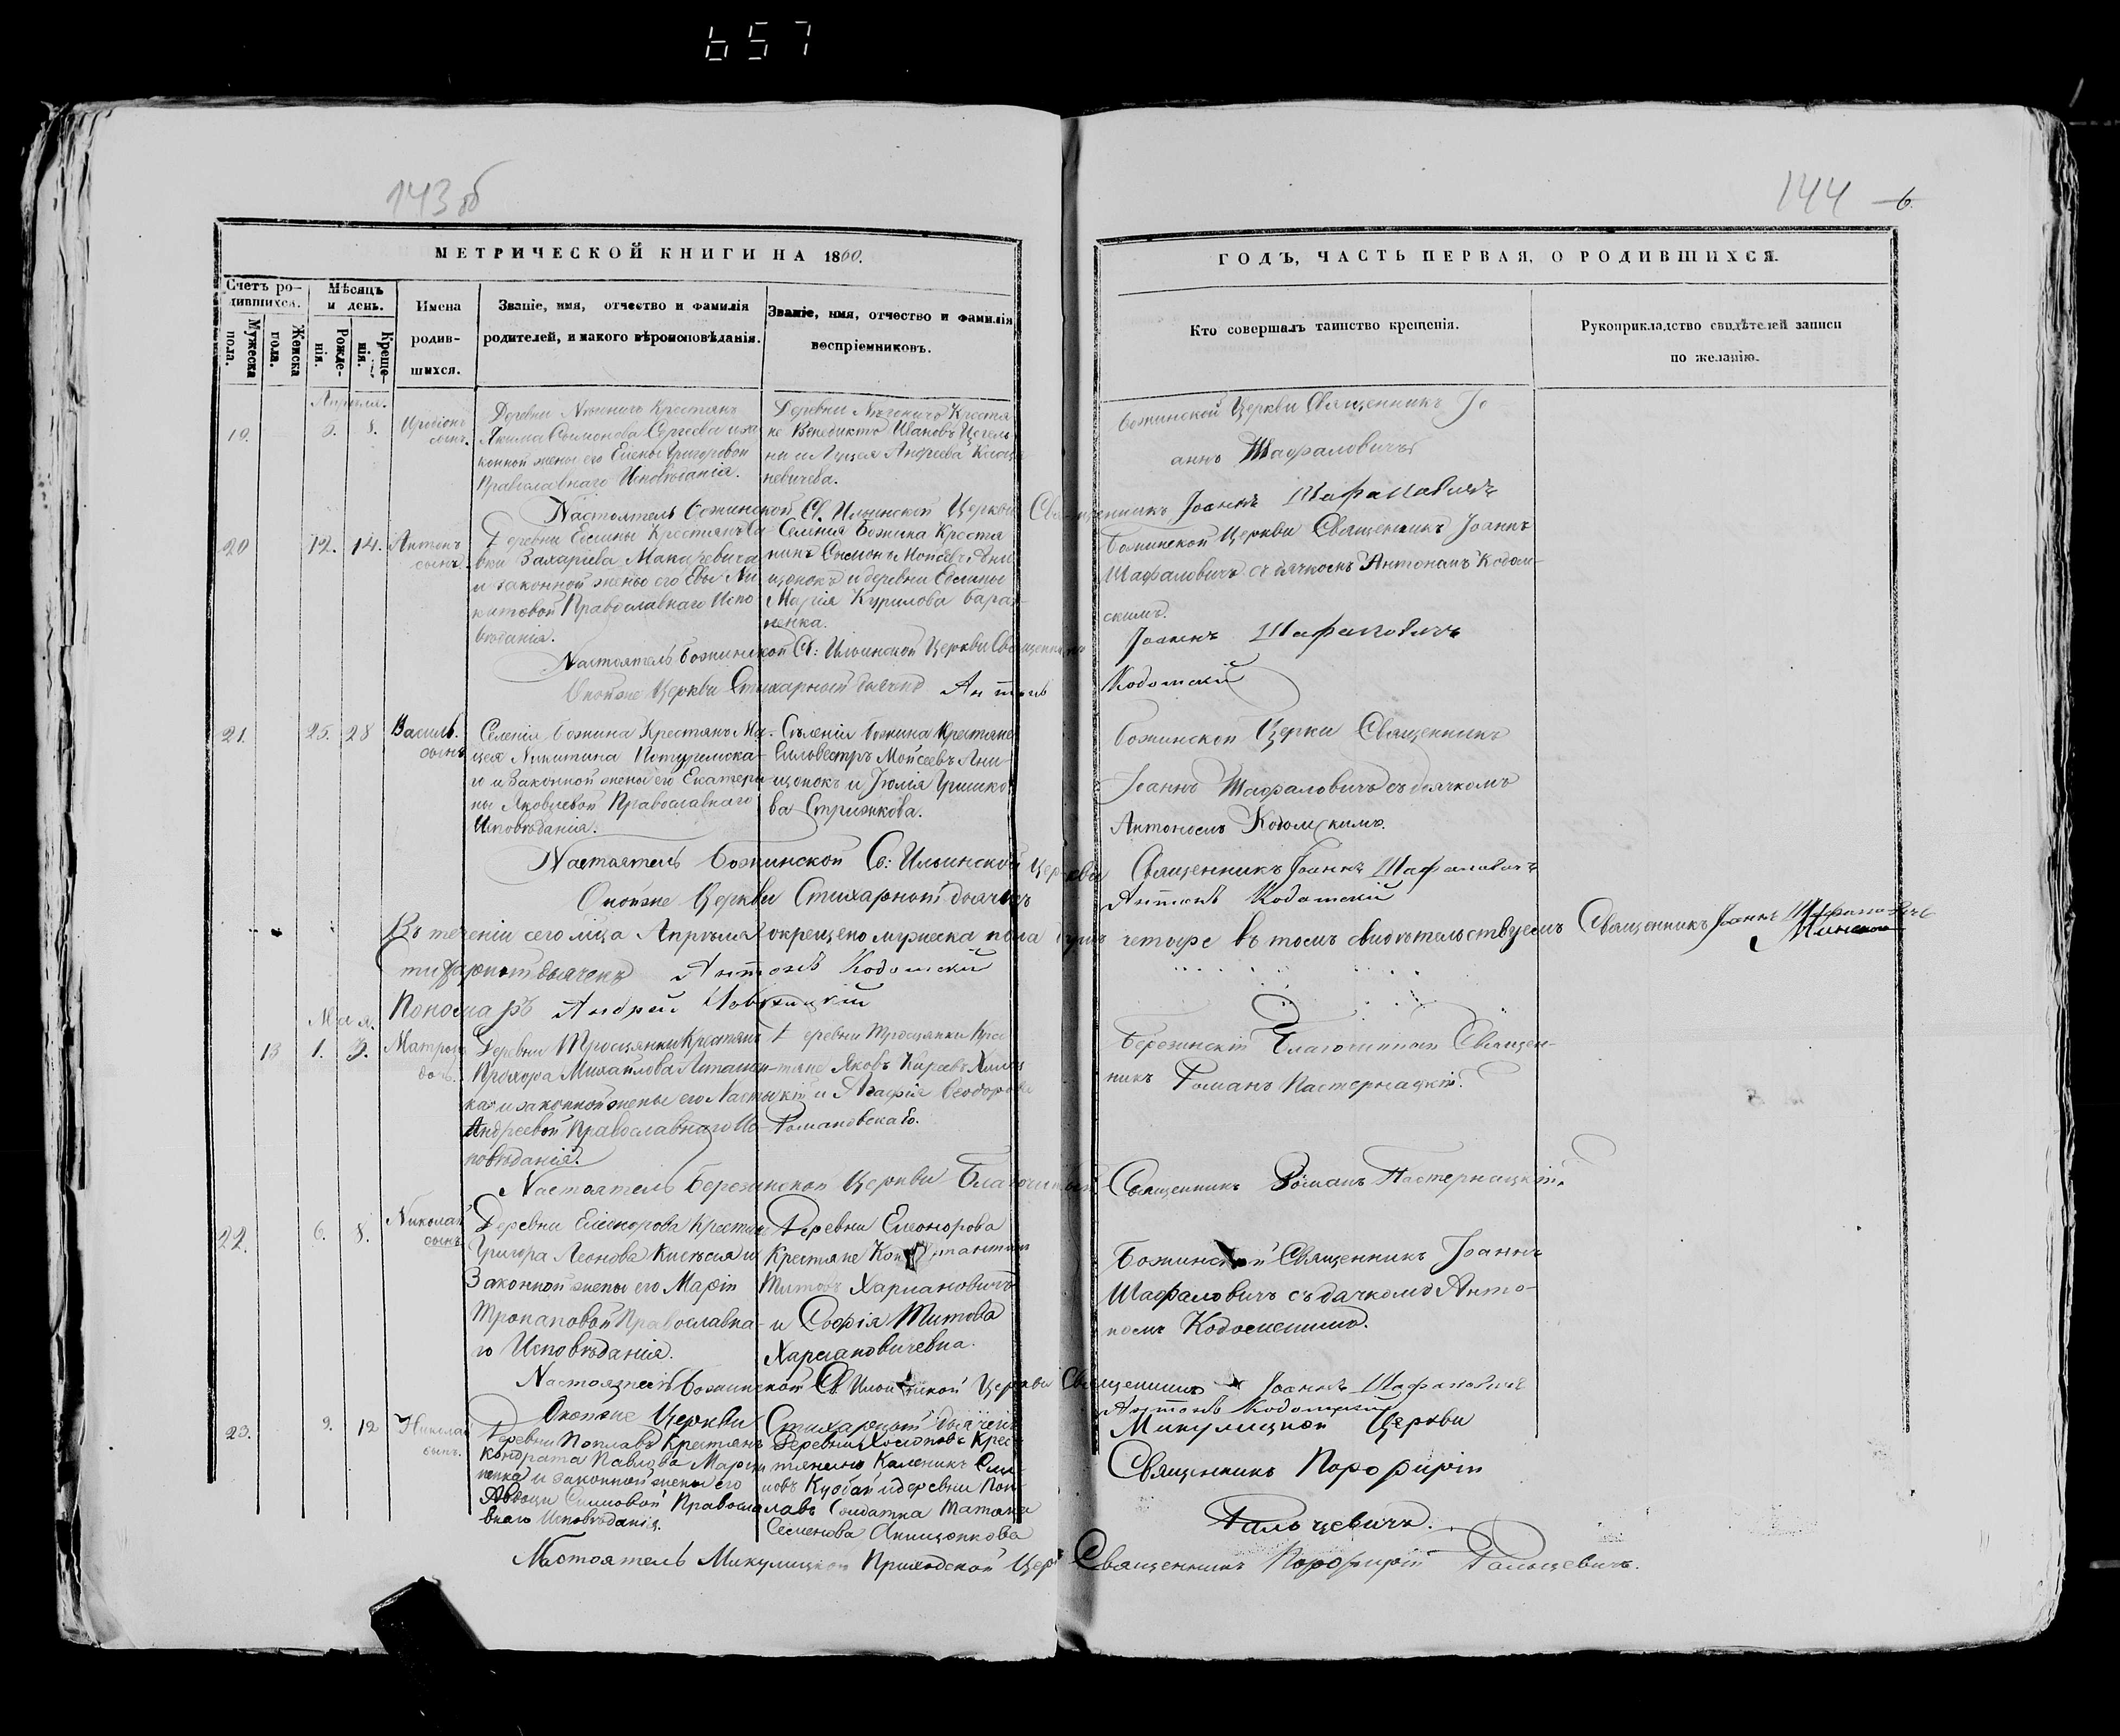 657
143 об
144 6.
МЕТРИЧЕСКОЙ КНИГИ НА 1860.
ГОДЪ, ЧАСТЬ ПЕРВАЯ, О РОДИВШИХСЯ.
Счетъ ро-
дившихся.
Мужеска
пола.
Женска
пола.
Мѣсяцъ
и день.
Рожде-
нія.
Креще-
нія.
Имена
родив-
шихся.
Званіе, имя, отчество и фамилія
родителей, и какого вѣроисповѣданія.
Званіе, имя, отчество и фамилія
воспріемниковъ.
Кто совершалъ таинство крещенія.
Рукоприкладство свидѣтелей записи
по желанію.
Апрѣля.
19. 8.
сынъ.
Деревни Крестьянъ
Якима Сымонова Сергеева и за
конной жены его Елены Григоровой
Православнаго Исповѣданія.
Деревни Крестья
не Венедиктъ Ивановъ
Андреева
невичева.
Божинской Церкви Священникъ Іо
аннъ Шафаловичъ
Настоятель Божинской Св. Ильинской Церкви Священникъ Іоаннъ Шафаловичъ
20 12. 14. Антонъ
сынъ.
Деревни Крестьянъ Са
вы Захаріева Макаревича
и законной жены его Евы Ни
китовой Православнаго Испо
вѣданія.
Селенія Божина Крестья
нинъ Сымонъ Моисеевъ Ани
щонокъ и деревни
Марія Курилова
Божинской Церкви Священникъ Іоаннъ
Шафаловичъ съ дьячкомъ Антономъ Кодом-
скимъ.
Настоятель Божинской Св: Ильинской Церкви Священникъ Іоаннъ Шафаловичъ
Онойже Церкви Стихарный дьячекъ Антонъ Кодомскій
21. 25. 28 Василь.
сынъ
Селенія Божина Крестьянъ Ма-
цея Никитина
и Законной жены его Екатери
ны Яковлевой Православнаго
Исповѣданія.
Селеніи Божина Крестьяне
Сильвестръ Моисеевъ Ани-
щонокъ и Юлія Гришко
ва Стрижкова.
Божинской Церкви Священникъ
Іоаннъ Шафаловичъ съ дьячкомъ
Антономъ Кодомскимъ.
Настоятель Божинской Св: Ильинской Церкви Священникъ Іоаннъ Шафаловичъ
Онойже Церкви Стихарный дьячекъ Антонъ Кодомскій
Въ теченіи сего мца Апрѣля окрещено мужеска пола душъ четыре въ томъ свидѣтельствуемъ Священникъ Іоаннъ Шафаловичъ
Стихарный дьячекъ Антонъ Кодомскій
Пономарь Андрей
Мая.
13 1. 3. Матрона
дочь.
Деревни Тросцянки Крестьянъ
Прохора Михайлова
и законной жены его Настасіи
Андреевой Православнаго Ис-
повѣданія.
Деревни Тросцянки Кре
стьяне Яковъ Киреевъ
и Агафія Феодорова
Романовская.
Березинскій Благочинный Священ-
никъ Романъ Пастернацкій.
Настоятель Березинской Церкви Благочинный Священникъ Романъ Пастернацкій.
22. 6. 8. Николай
сынъ
Деревни Елеонорова Крестьянъ
Григора Леонова и
Законной жены его Маріи
Православна-
го Исповѣданія.
Деревни Елеонорова
Крестьяне Константинъ
Титовъ Хармановичъ
и Софія Титова
Хармановичевна.
Божинской Священникъ Іоаннъ
Шафаловичъ съ дячкомъ Анто-
номъ Кодомскимъ.
Настоятель Божинской Св. Ильинской Церкви Священникъ Іоаннъ Шафаловичъ
Онойже Церкви Стихарный дьячекъ Антонъ Кодомскій
23. 9. 12 Николай
сынъ.
Деревни Поплавъ Крестьянъ
Кондрата Павлова
и законной жены его
Авдоци Православ
внаго Исповѣданія.
Деревни Крес-
тьянинъ Каленикъ
и деревни Поп-
лавъ Солдатка Татьяна
Семенова Анищонкова
Микулицкой Церкви
Священникъ Порфирій
Гальцевичъ.
Настоятель Микулицкой Приходской Цер Священникъ Порфирій Гальцевичъ.